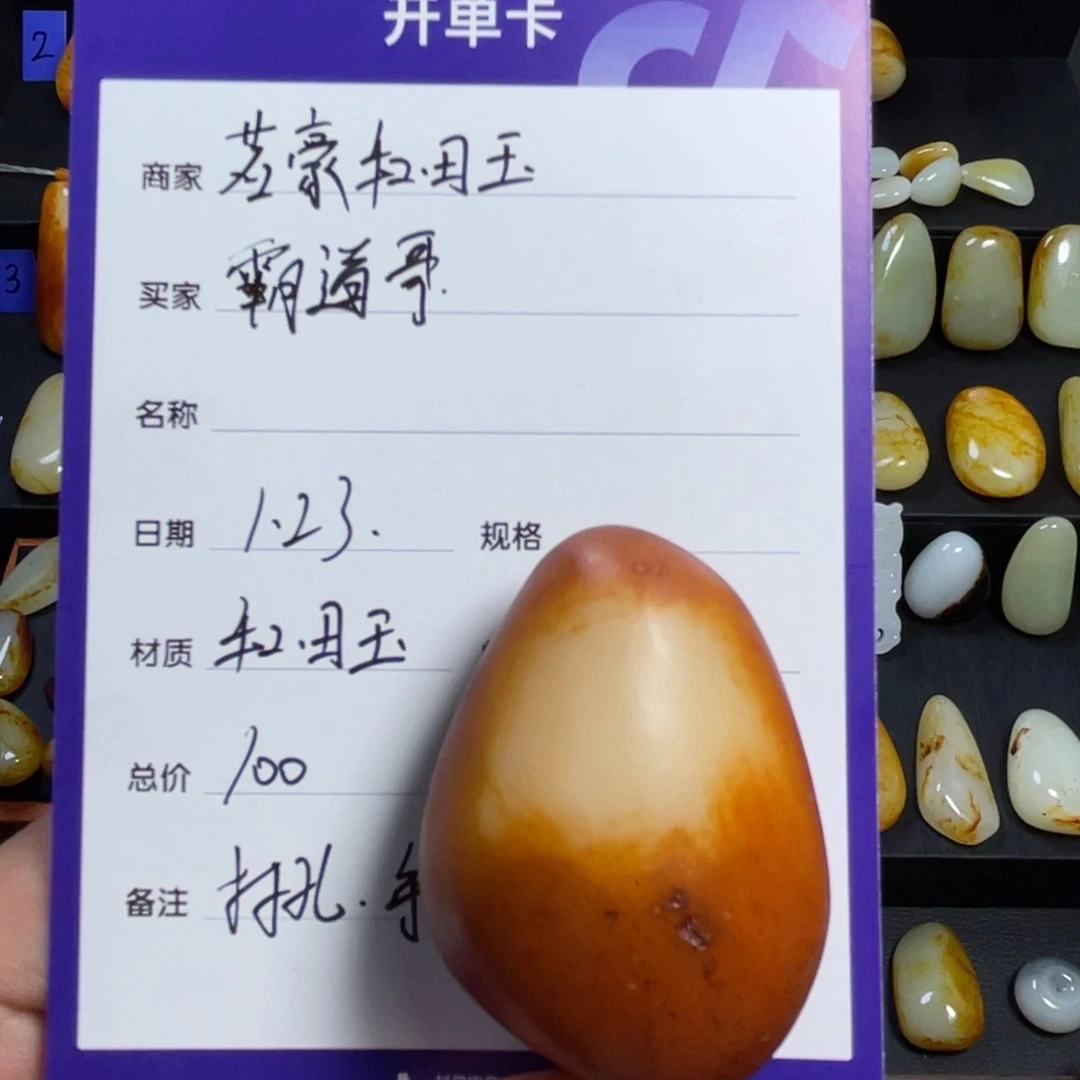 2
开单卡
商家 茗豪和田玉
买家 霸道哥
3
名称
日期 1.23. 规格
材质 和田玉
总价 100
备注 打孔.